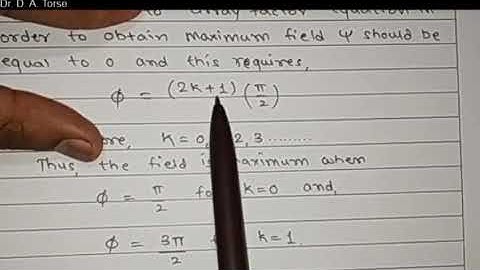 Dr. D. A. Torse
to array factor equation in
order to obtain maximum field ψ should be
equal to 0 and this requires,
φ = (2k+1) (π/2)
k = 0, 2, 3 .........
Thus, the field is maximum when
φ = π/2 for k=0 and,
φ = 3π/2 k=1.